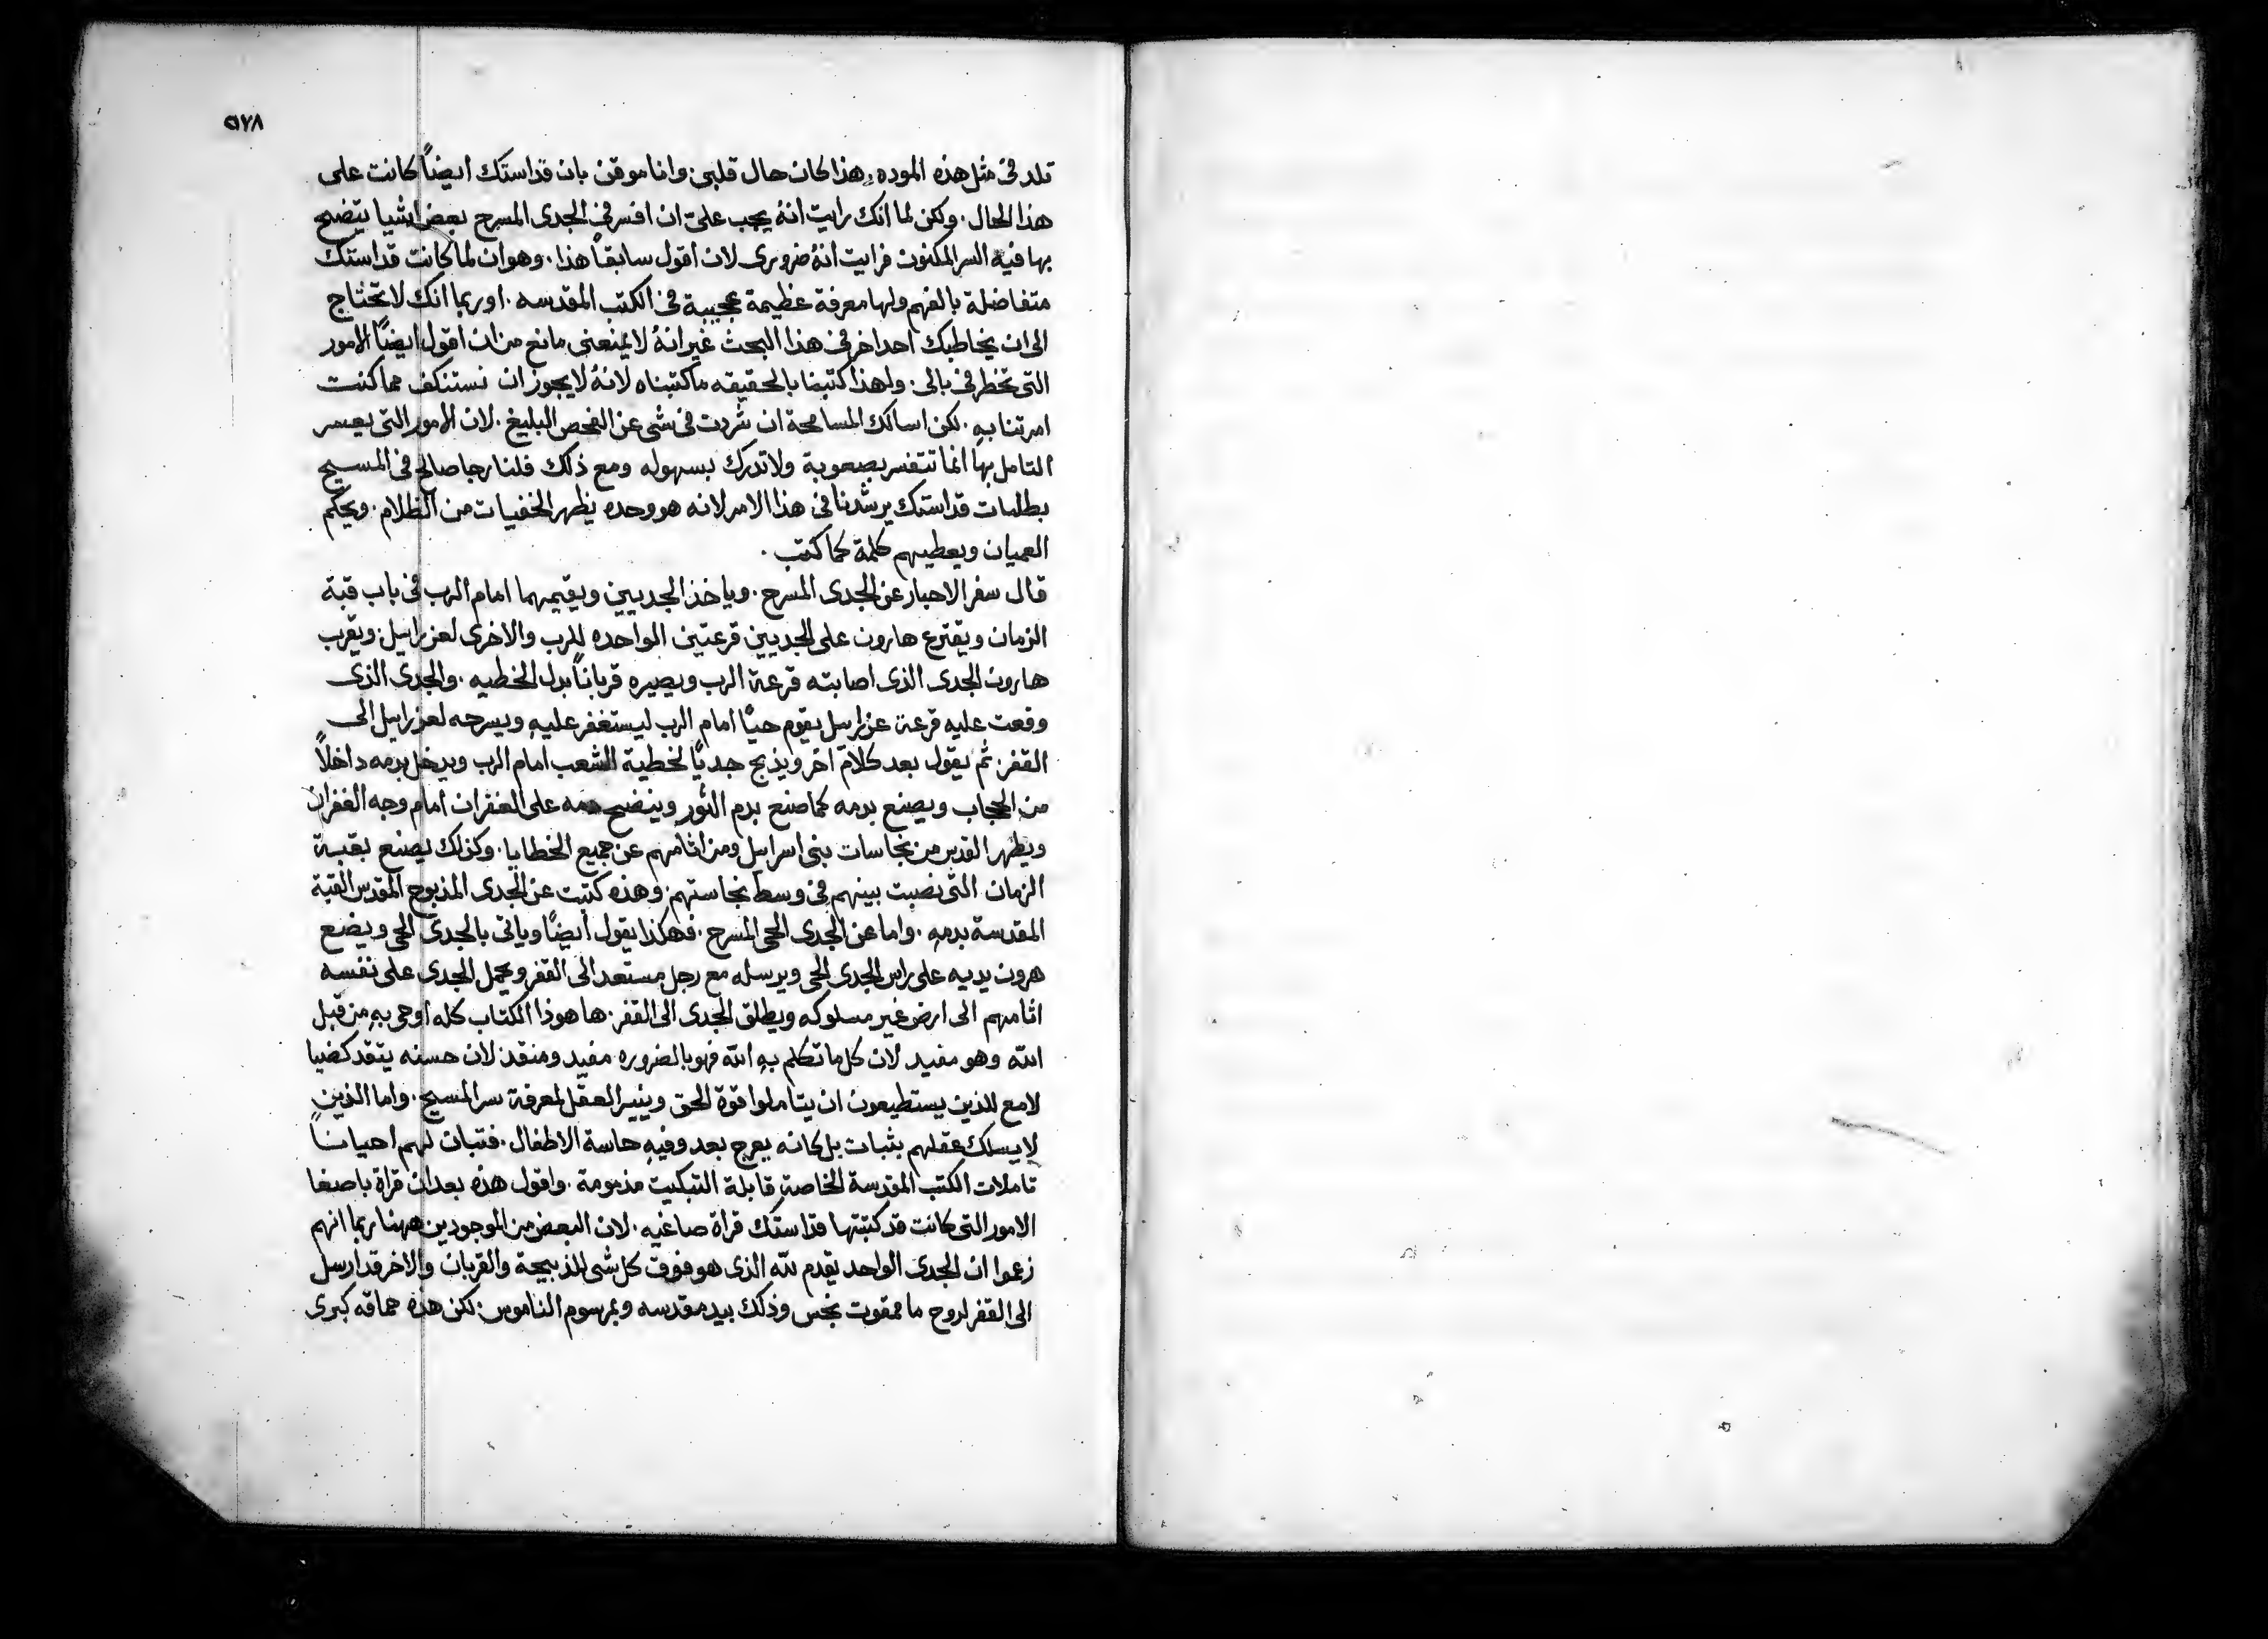 ٥٧٨
تلد في مثل هذه الموده. هذا كان حال قلبي. وانا موقن بان قداستك ايضاً كانت على
هذا الحال. ولكن لما انك رايت انهُ يجب عليّ ان افسر في الجدى المسرح بعض اشيا يتضح
بها فيه السر المكنون فرايت انهُ ضرورى لان اقول سابقاً هذا. وهو ان لما كانت قداستك
متفاضلة بالفهم ولها معرفة عظيمة عجيبة في الكتب المقدسه. اوربما انك لا تحتاج
الى ان يخاطبك احد اخر في هذا البحث غير انهُ لا يمنعنى مانع من ان اقول ايضاً الامور
التى تخطر في بالى. ولهذا كتبنا بالحقيقه ما كتبناه لانهُ لا يجوز ان نستنكف مما كنت
امرتنا بهِ. لكن اسالك المسامحة ان شردت فى شى عن الفحص البليغ. لان الامور التى يعسر
التامل بها انما تتفسر بصعوبة ولا تدرك بسهوله ومع ذلك فلنا رجا صالح فى المسيح
بطلبات قداستك يرشدنا فى هذا الامر لانه هو وحده يظهر الخفيات من الظلام. ويحكم
العميان ويعطيهم كلمة كما كتب.
قال سفر الاحبار عن الجدى المسرح. وياخذ الجديين ويقيمهما امام الرب في باب قبة
الزمان ويقترع هارون على الجديين قرعتين الواحده للرب والاخرى لعزرايل. ويقرب
هارون الجدى الذى اصابته قرعة الرب ويصيره قرباناً بدل الخطيه. والجدى الذى
وقعت عليه قرعة عزرايل يقوم حياً امام الرب ليستغفر عليهِ ويسرحه لعزرايل الى
القفر. ثم يقول بعد كلام اخر ويذبح جدياً لخطية الشعب امام الرب ويدخل بدمه داخلاً
من الحجاب ويصنع بدمه كما صنع بدم الثور وينضح دمه على الغفران امام وجه الغفران
ويطهر القدس من نجاسات بنى اسرايل ومن اثامهم عن جميع الخطايا. وكذلك يصنع بقبة
الزمان التى نصبت بينهم في وسط نجاستهم. وهذه كتبت عن الجدى المذبوح المقدس القبة
المقدسة بدمهِ. واما عن الجدى الحى المسرح. فهكذا يقول ايضاً وياتى بالجدى الحى ويضع
هرون يديه على راس الجدى الحى ويرسله مع رجل مستعد الى القفر ويحمل الجدى على نفسه
اثامهم الى ارض غير مسلوكه ويطلق الجدى الى القفر. ها هوذا الكتاب كله اوحى بهِ من قبل
الله وهو مفيد لان كل ما تكلم بهِ الله فهو بالضروره مفيد ومنقذ لان حسنه يتقد كضيا
لامع للذين يستطيعون ان يتاملوا قوة الحق وينير العقل لمعرفة سر المسيح. واما الذين
لا يسلك عقلهم بثبات بل كانه يعرج بعد وفيهِ حاسة الاطفال. فتبان لهم احياناً
تاملات الكتب المقدسة الخاصة قابلة التبكيت مذمومة. واقول هذه بعد ان قراة باصغا
الامور التى كانت قد كتبتها قداستك قراة صاغيه. لان البعض من الموجودين ههنا ربما انهم
زعموا ان الجدى الواحد تقدم لله الذى هو فوق كل شى للذبيحة والقربان والاخر قد ارسل
الى القفر لروح ما ممقوت نجس وذلك بيد مقدسه وبمرسوم الناموس. لكن هذه حماقه كبرى